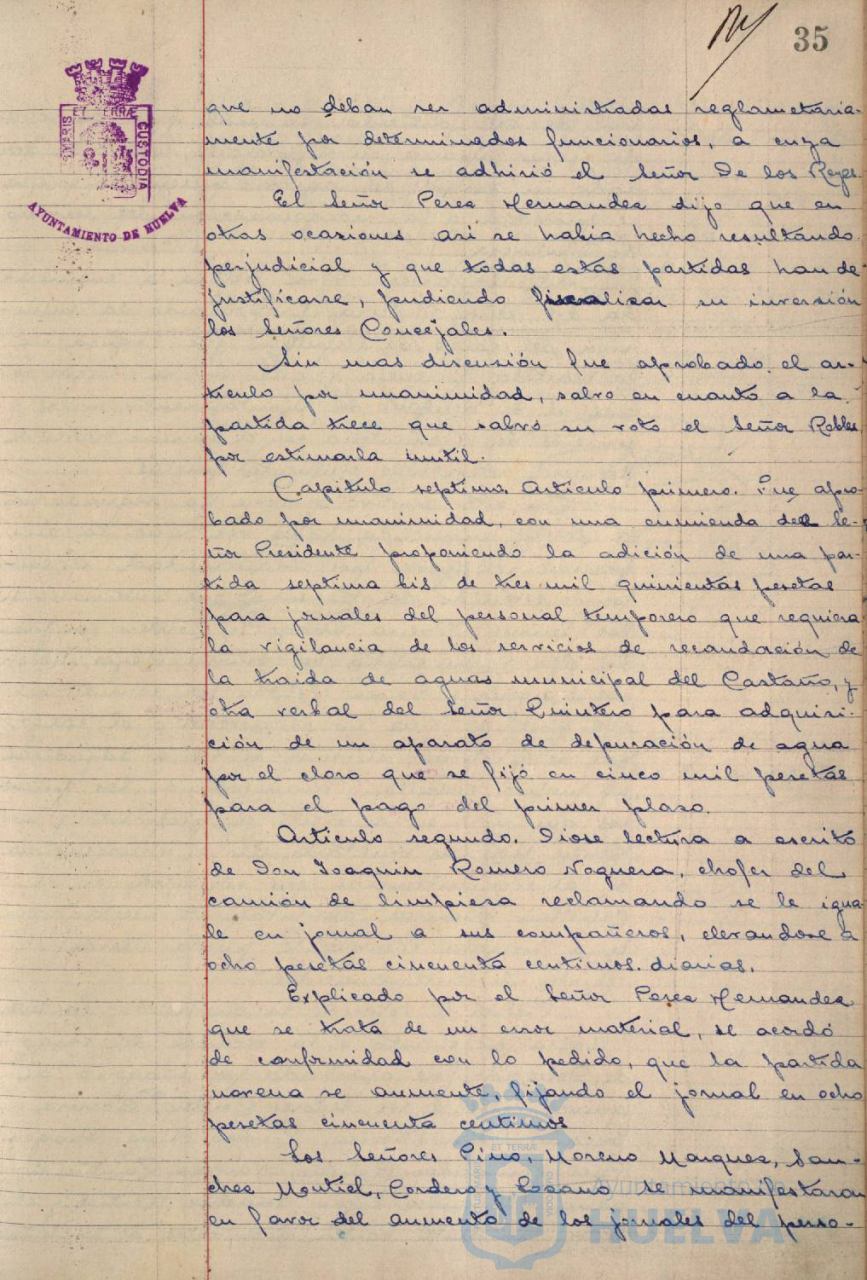 35
ET TERRÆ
CUSTODIA
AYUNTAMIENTO DE HUELVA
que no deban ser administradas reglametaria-
mente por determinados funcionarios, a cuya
manifestación se adhirió el Señor De los Reyes.
El Señor Perez Hernandez dijo que en
otras ocasiones asi se habia hecho resultando
perjudicial y que todas estas partidas han de
justificarse, pudiendo fiscalizar su inversión
los Señores Concejales.
Sin mas discusión fue aprobado el ar-
ticulo por unanimidad, salvo en cuanto a la
partida trece que salvó su voto el Señor Robles
por estimarla inutil.
Capitulo septimo. Articulo primero. Fue apro-
bado por unanimidad, con una enmienda del Se-
ñor Presidente proponiendo la adición de una par-
tida septima bis de tres mil quinientas pesetas
para jornales del personal temporero que requiera
la vigilancia de los servicios de recaudación de
la traida de aguas municipal del Castaño, y
otra verbal del Señor Quintero para adquisi-
ción de un aparato de depuración de agua
por el cloro que se fijó en cinco mil pesetas
para el pago del primer plazo.
Articulo segundo. Diose lectura a escrito
de Don Joaquin Romero Noguera, chofer del
camión de limpieza reclamando se le igua-
le en jornal a sus compañeros, elevandose a
ocho pesetas cincuenta centimos diarias.
Explicado por el Señor Perez Hernandez
que se trata de un error material, se acordó
de confrmidad con lo pedido, que la partida
novena se aumente, fijando el jornal en ocho
pesetas cincuenta centimos
Los Señores Pino, Moreno Marquez, San-
chez Montiel, Cordero y Lozano se manifestaron
en favor del aumento de los jornales del perso-
Ayuntamiento de
HUELVA